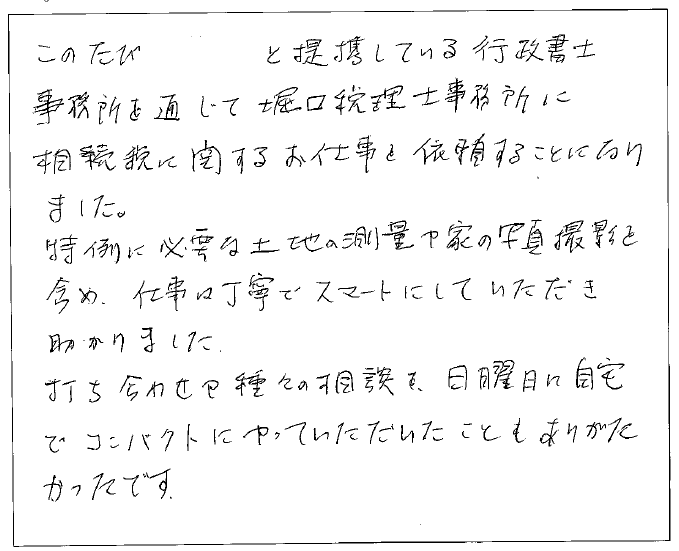 このたび　　　　と提携している行政書士
事務所を通じて堀口税理士事務所に
相続税に関するお仕事を依頼することになり
ました。
特例に必要な土地の測量や家の写真撮影を
含め、仕事は丁寧でスマートにしていただき
助かりました。
打ち合わせや種々の相談を、日曜日に自宅
でコンパクトにやっていただいたこともありがた
かったです。